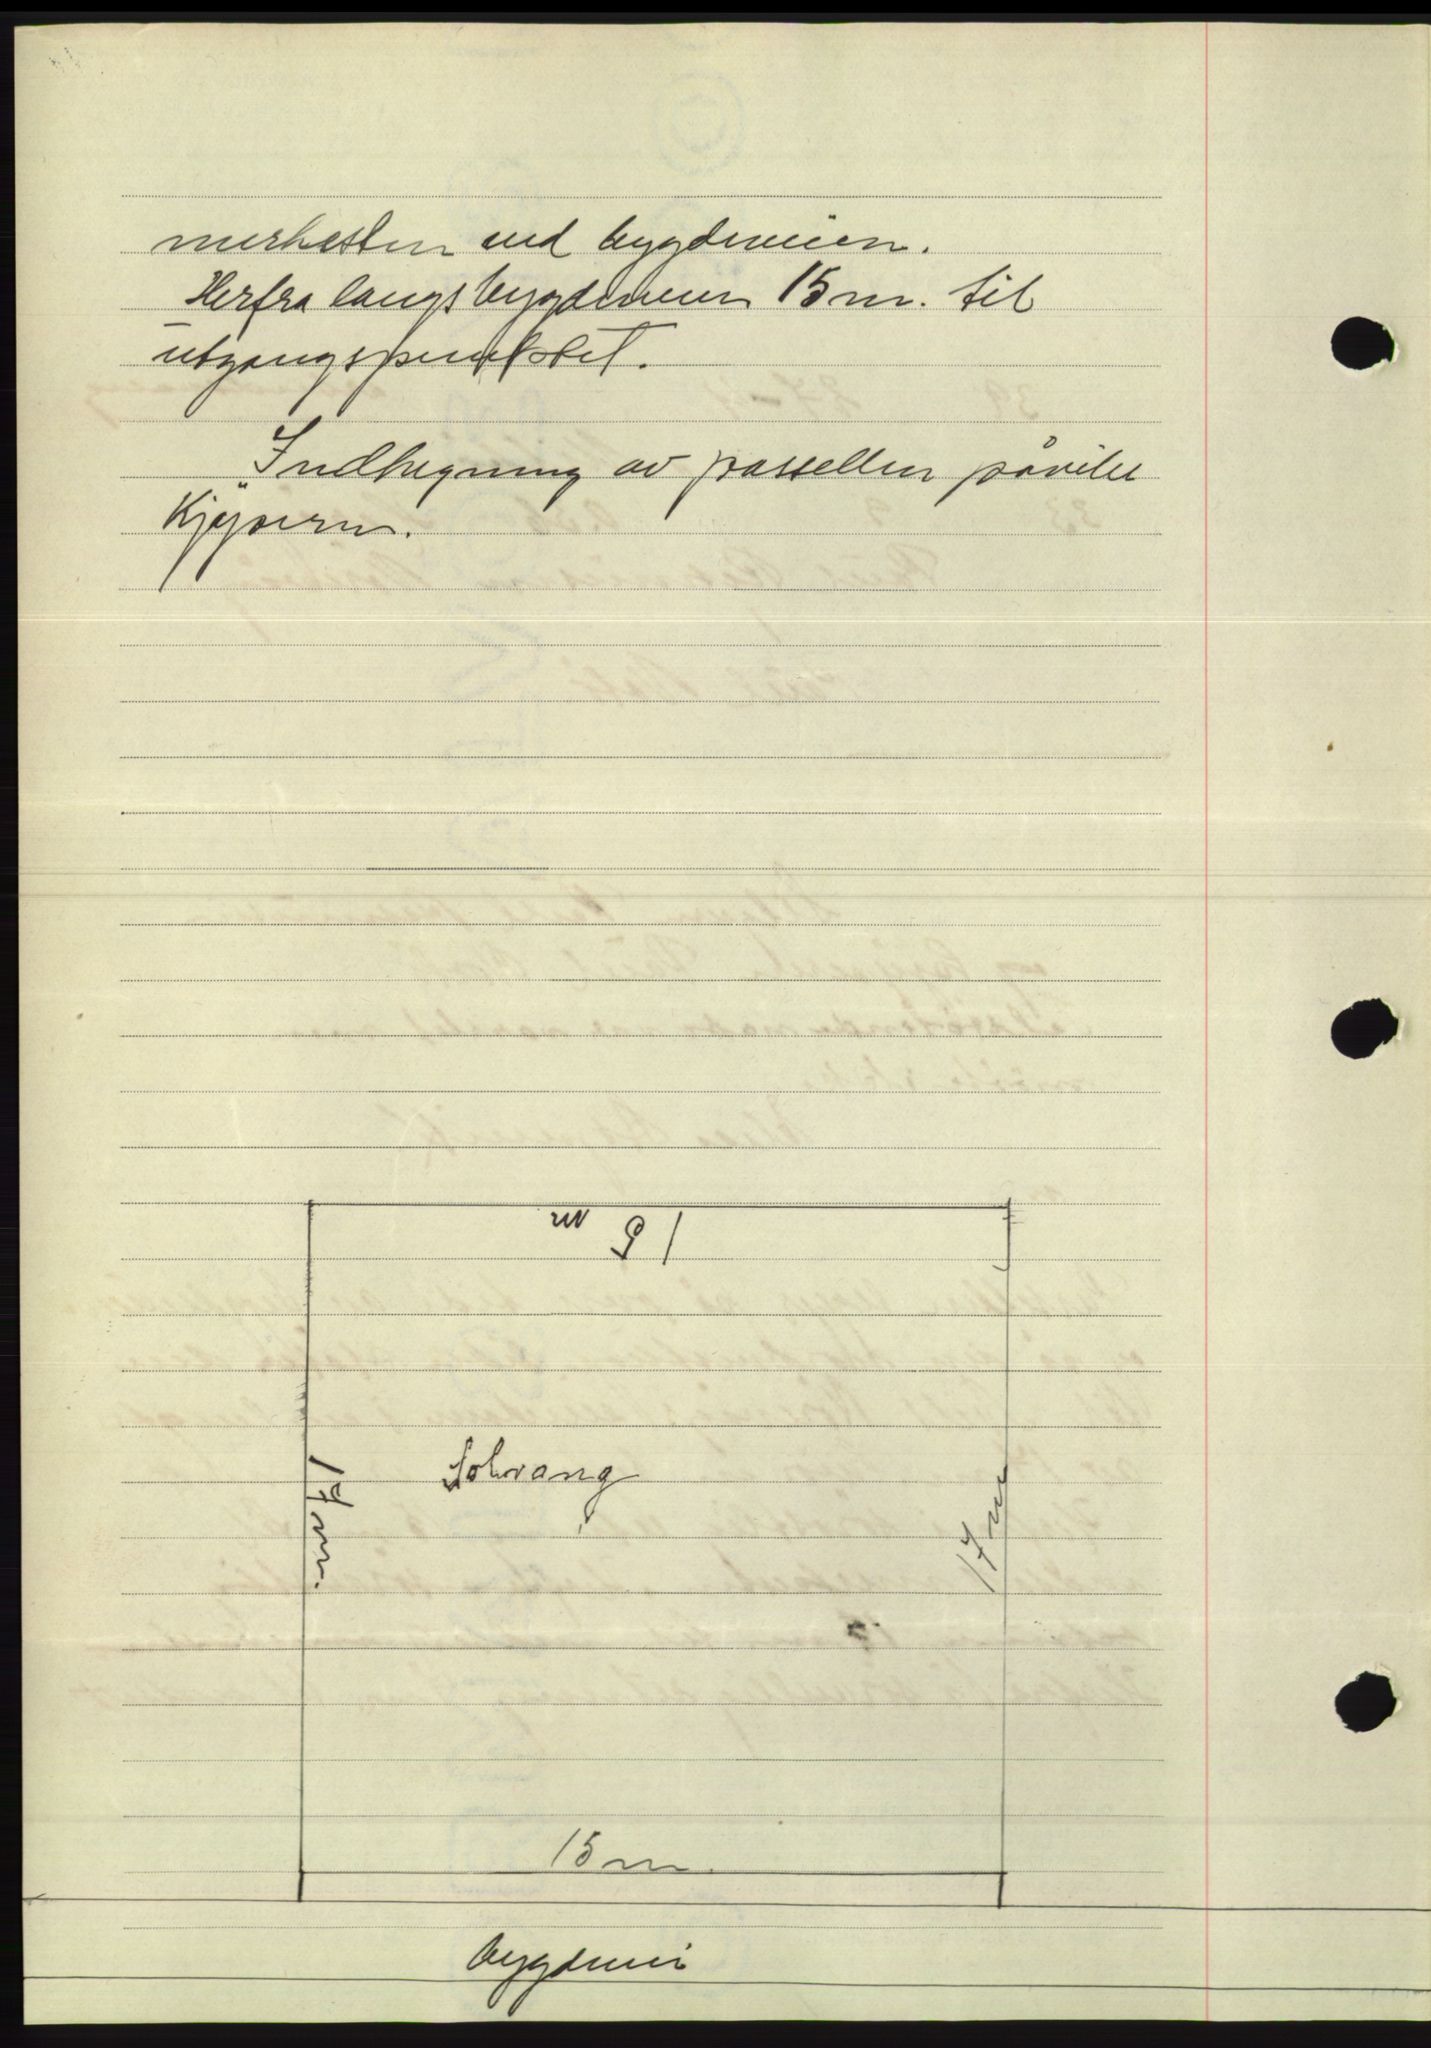 merkesten ved bygdeveien.
Herfra langs bygdeveien 15 m. til
utgangspunktet.
Indhegning av parsellen påviler
Kjøperen.
15 m
Solvang
17 m.
17 m
15 m.
bygdevei